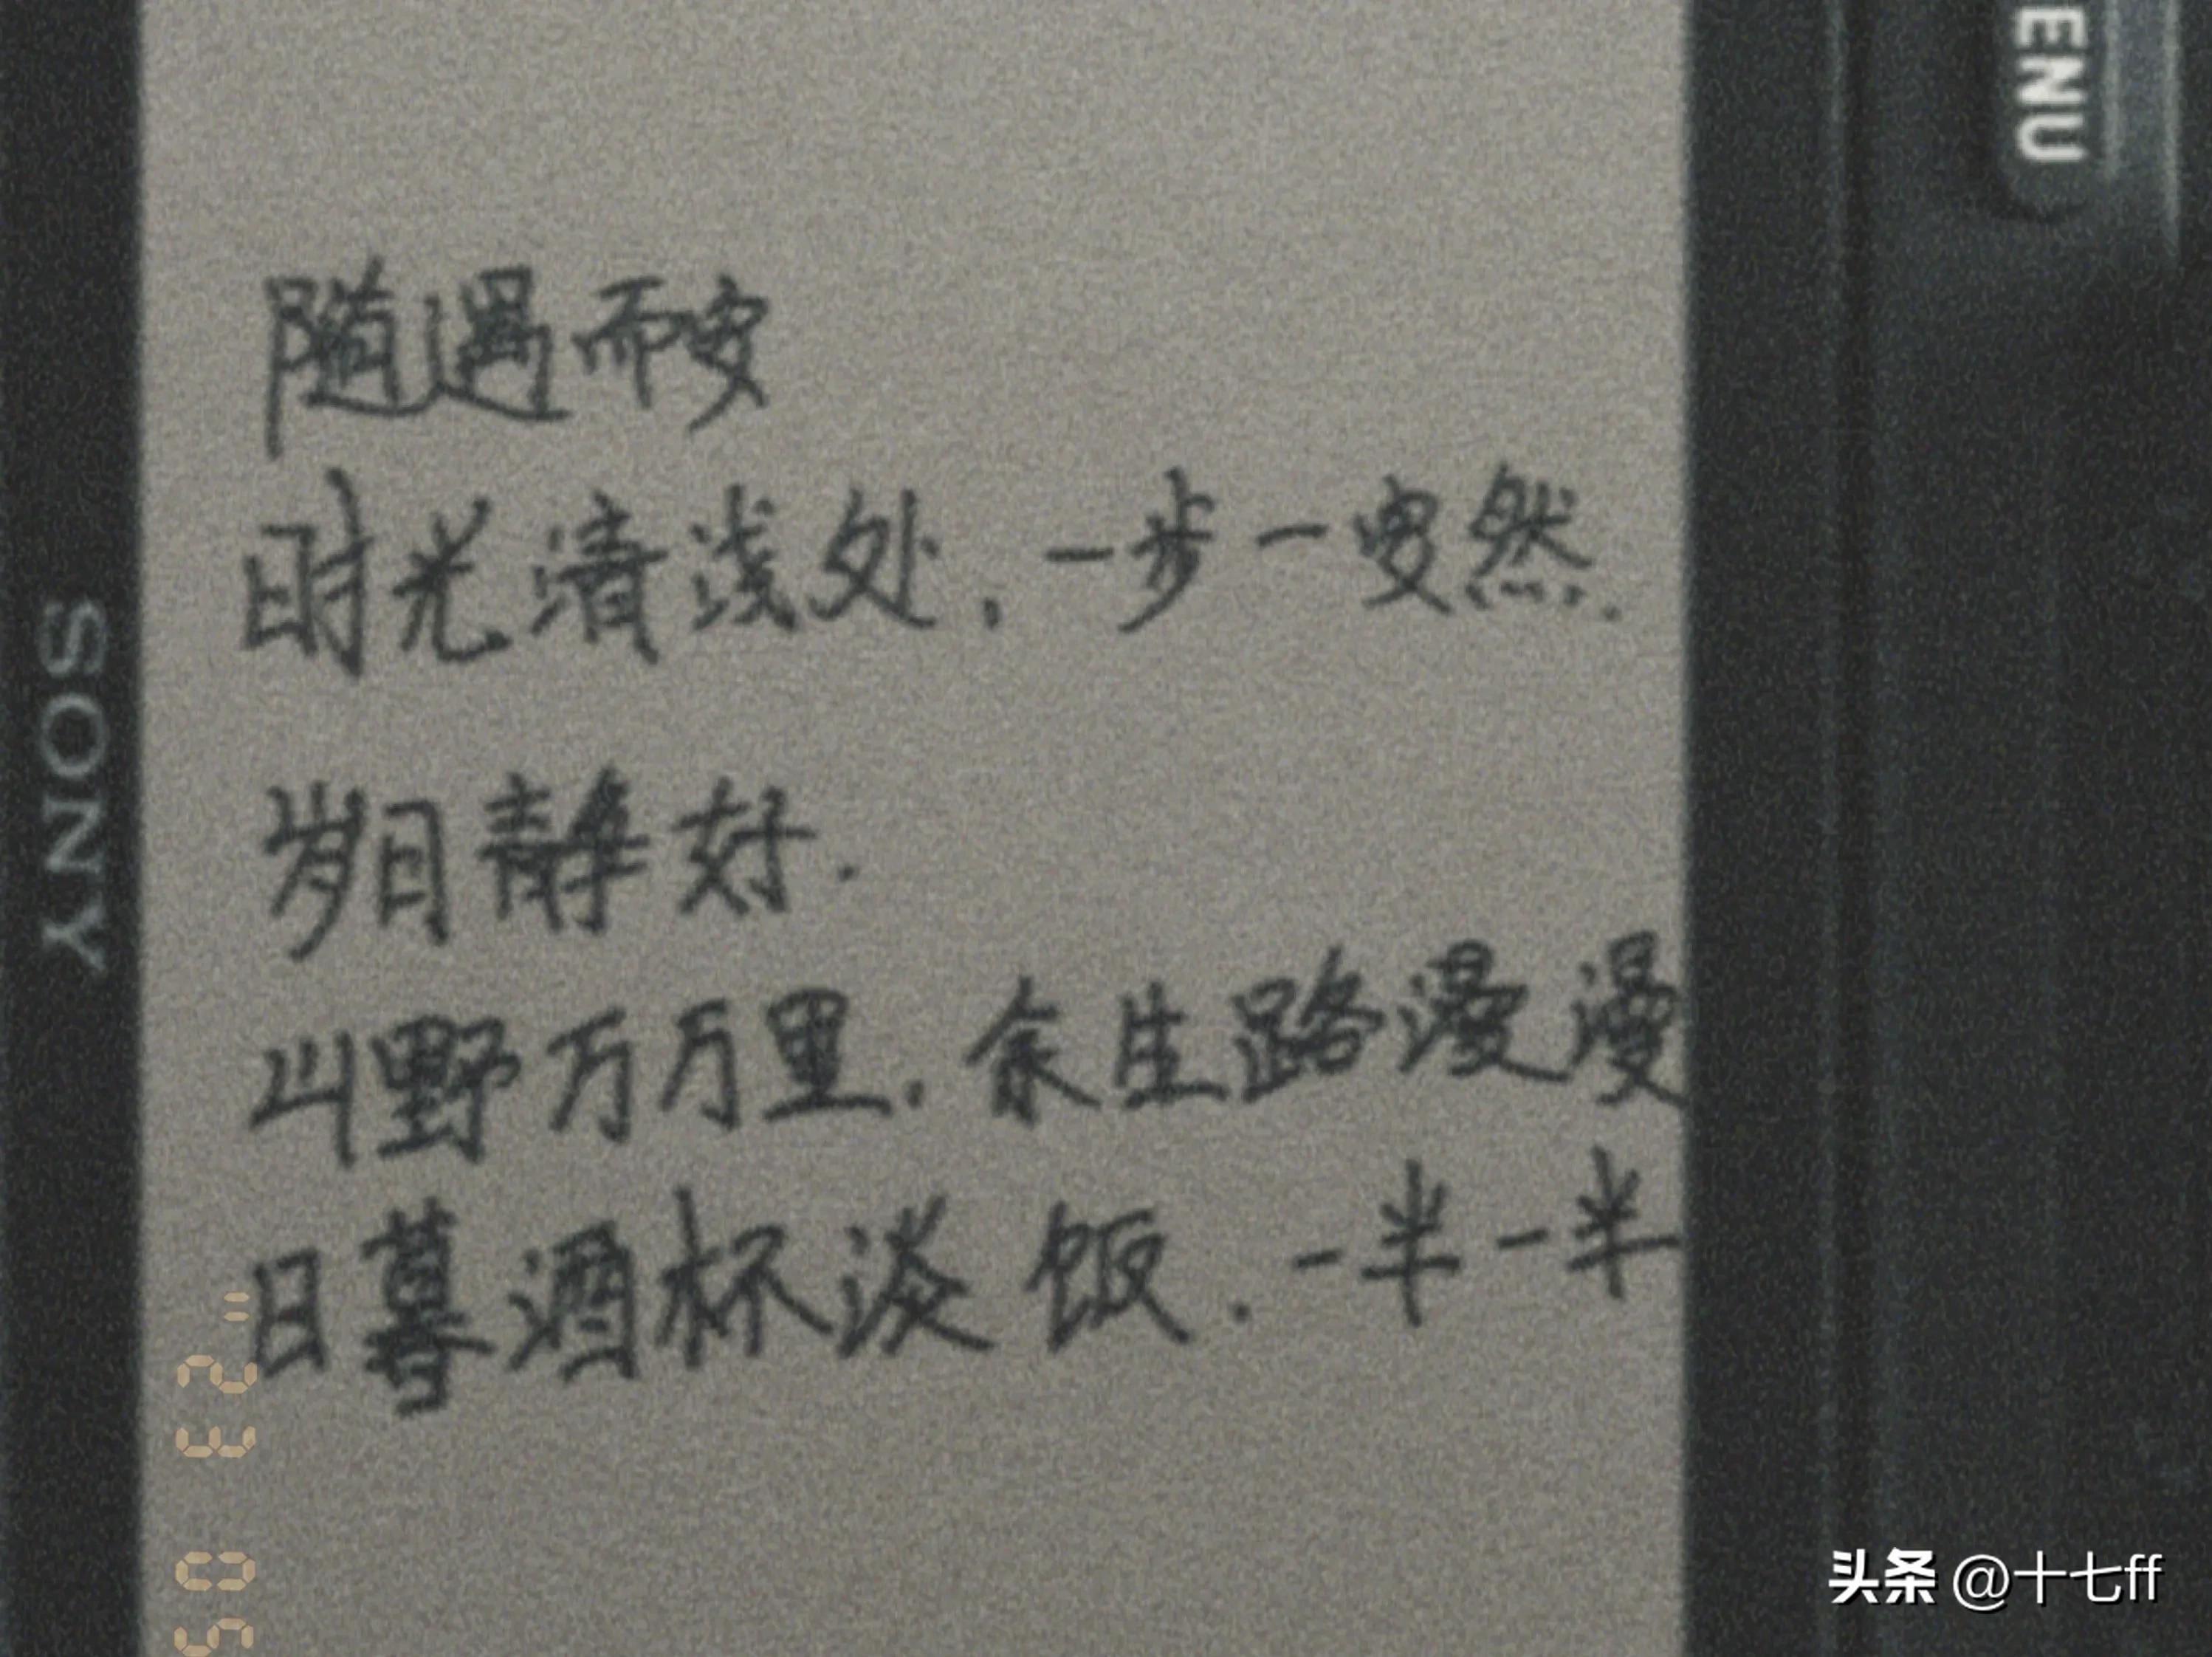 随遇而安
时光清浅处，一步一安然.
岁月静好.
山野万万里.余生路漫漫
日暮酒杯淡饭.一半一半
SONY
ENU
'23 05
头条 @十七ff